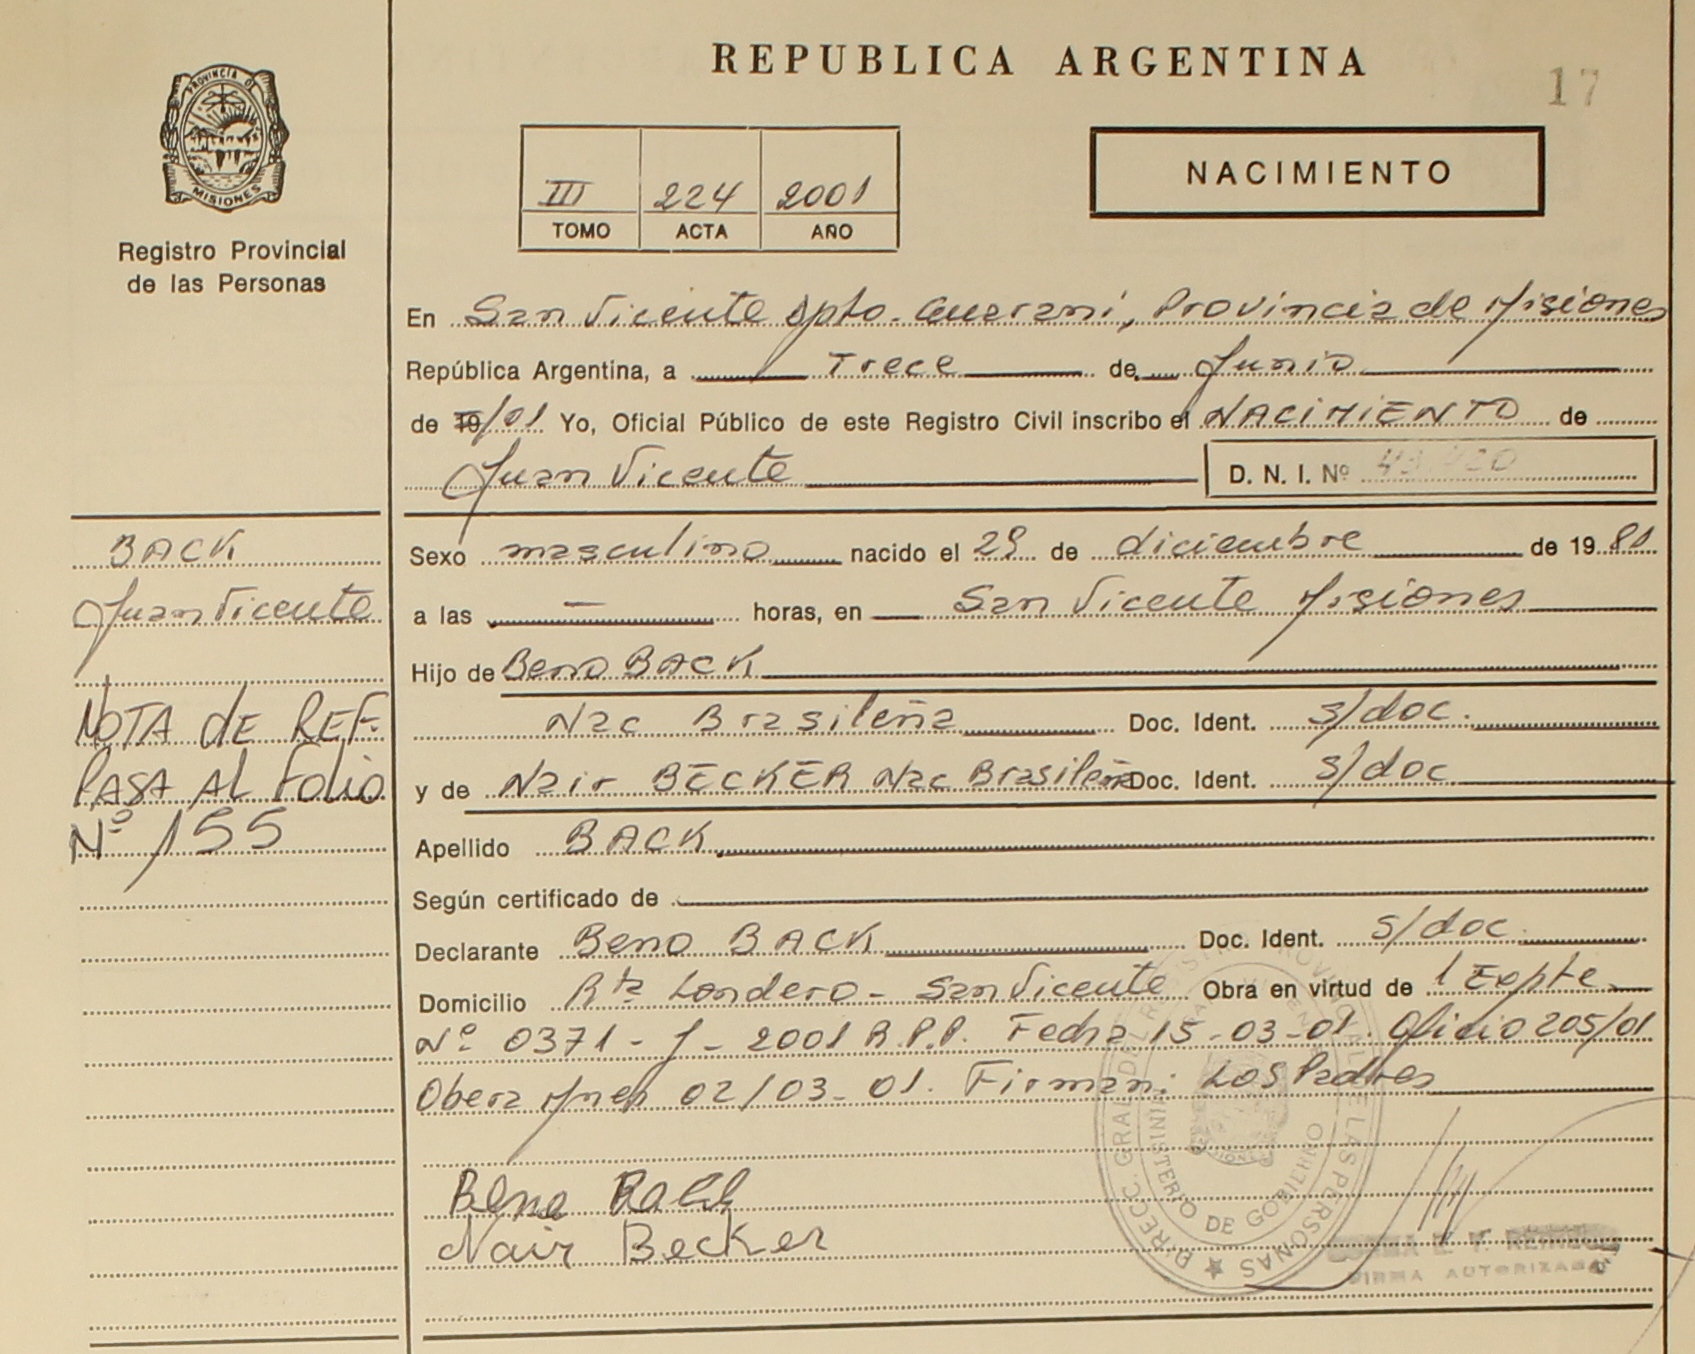 REPUBLICA ARGENTINA
17
PROVINCIA DE
MISIONES
Registro Provincial
de las Personas
III 224 2001
TOMO ACTA AÑO
NACIMIENTO
En San Vicente Dpto. Guarani, Provincia de Misiones
República Argentina, a Trece de Junio
de 19/01 Yo, Oficial Público de este Registro Civil inscribo el NACIMIENTO de
Juan Vicente D. N. I. Nº
BACK
Juan Vicente
NOTA DE REF.
PASA AL FOLIO
Nº 155
Sexo masculino nacido el 29 de diciembre de 19
a las — horas, en San Vicente Misiones
Hijo de Beno BACK
Nac Brasileña Doc. Ident. s/doc.
y de Nair BECKER Nac Brasileña Doc. Ident. s/doc
Apellido BACK
Según certificado de
Declarante Beno BACK Doc. Ident. s/doc.
Domicilio Rta Londero - San Vicente Obra en virtud de 1 Expte
Nº 0371 - J - 2001 R.P.P. Fecha 15-03-01. Oficio 205/01
Obera Mnes 02/03-01. Firman: Los Padres
Beno Back
Nair Becker
DIRECC. GRAL. DEL REGISTRO PROVINCIAL DE LAS PERSONAS
MINISTERIO DE GOBIERNO
FIRMA AUTORIZADA